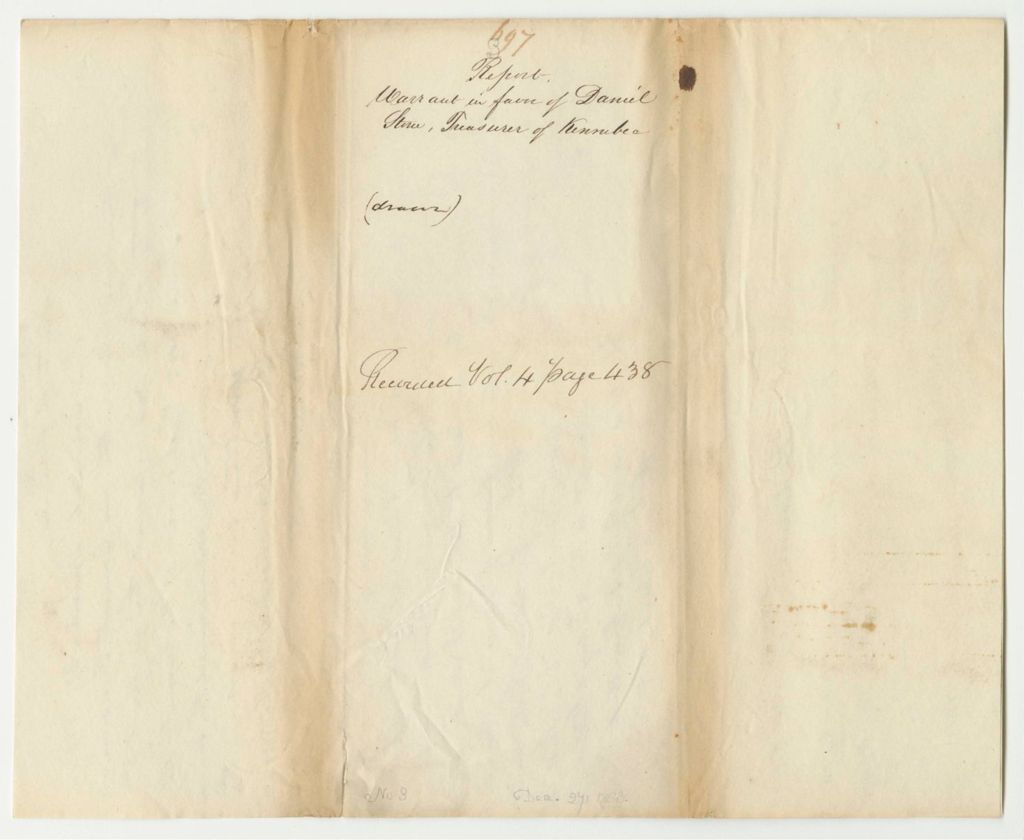 697
Report.
Warrant in favor of Daniel
Stone, Treasurer of Kennebec
(drawn)
Recorded Vol. 4 page 438
No 8
Dec.